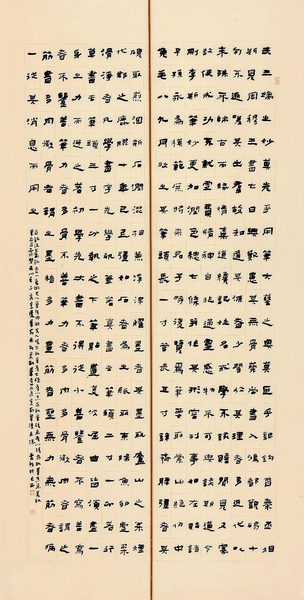 夫三端之妙莫先乎用筆六藝之奧莫重乎銀鉤昔秦丞相
斯見周穆王書七日興歎患其無骨蔡尚書邕入鴻都觀碣十
旬不返嗟其出羣故知達其源者少闇於理者多近代以
來殊不師古而緣情棄道纔記姓名或學不該贍聞見又寡
致使成功不就虛費精神自非通靈感物不可與談斯道今
刪李斯筆妙更加潤色總七條并作其形容列事如左貽諸
子孫永為模範庶將來君子時復覽焉筆要取崇山絕仞中
兔毛八九月收之其筆頭長一寸管長五寸鋒齊腰強者其
硯取煎涸新石潤澀相兼浮津耀墨者其墨取廬山之松煙
代郡之鹿膠十年已上強如石者為之紙取東陽魚卵虛柔
滑淨者凡學書字先學執筆若真書去筆頭二寸一分若行
草書去筆頭三寸一分執之下筆點畫芟波屈曲皆須盡一
身之力而送之初學先大書不得從小善鑒者不寫善寫
者不鑒善筆力者多骨不善筆力者多肉多骨微肉者謂之
筋書多肉微骨者謂之墨豬多力豐筋者聖無力無筋者病
一一從其消息而用之